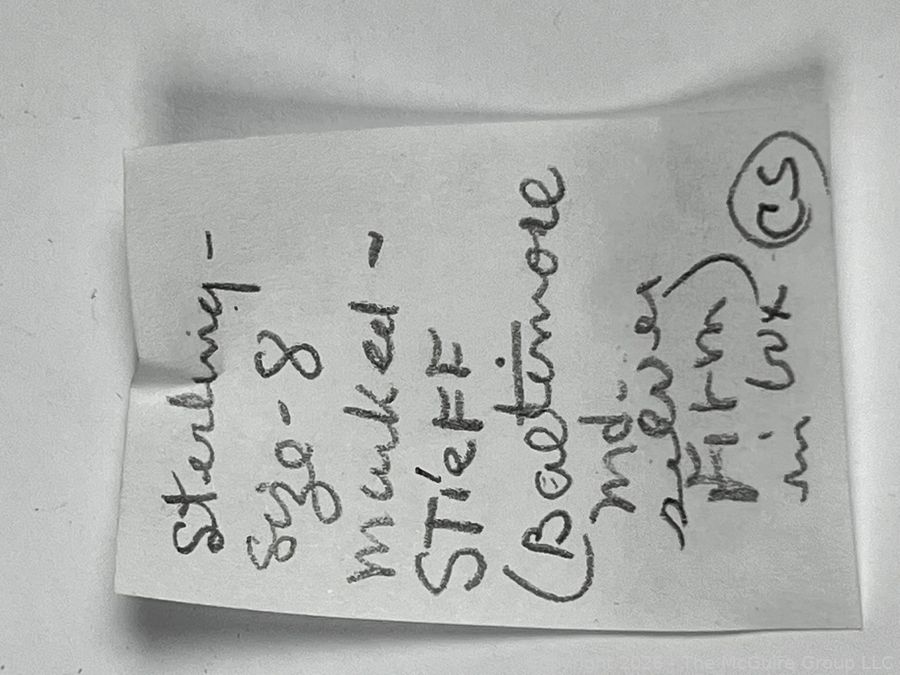 Sterling -
Size - 8
marked -
STieFF
(Baltimore
Md.
silver
Firm)
in wx CS
Copyright 2026 - The McGuire Group LLC